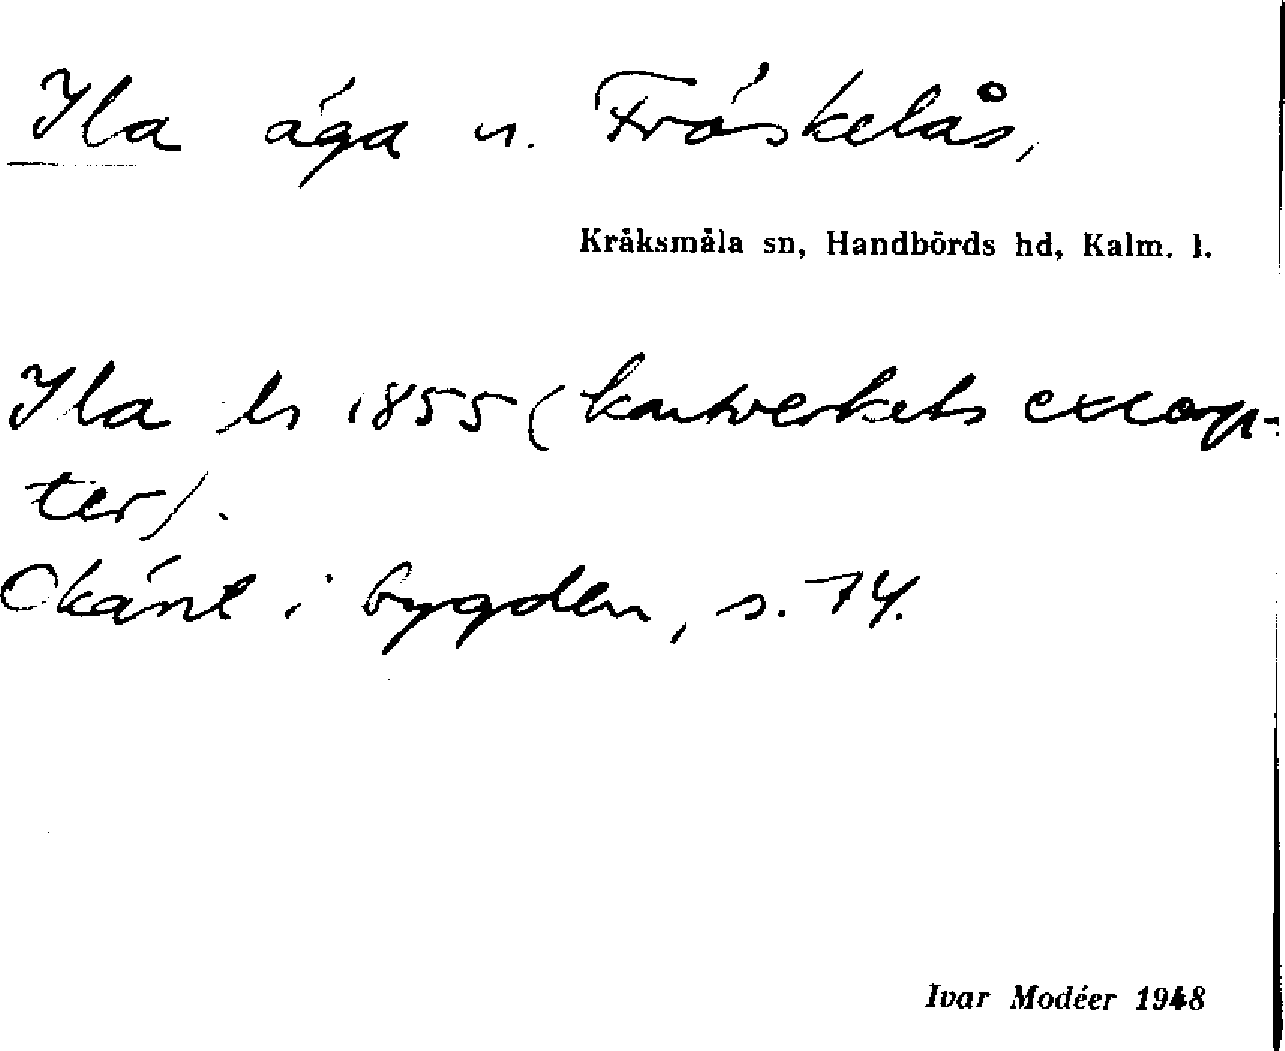 Ila äga u. Fröskelås,
Kråksmåla sn, Handbörds hd, Kalm. l.
Ila ls 1855 (kartverkets excerp-
ter).
Okänt i bygden, s. 74.
Ivar Modéer 1948